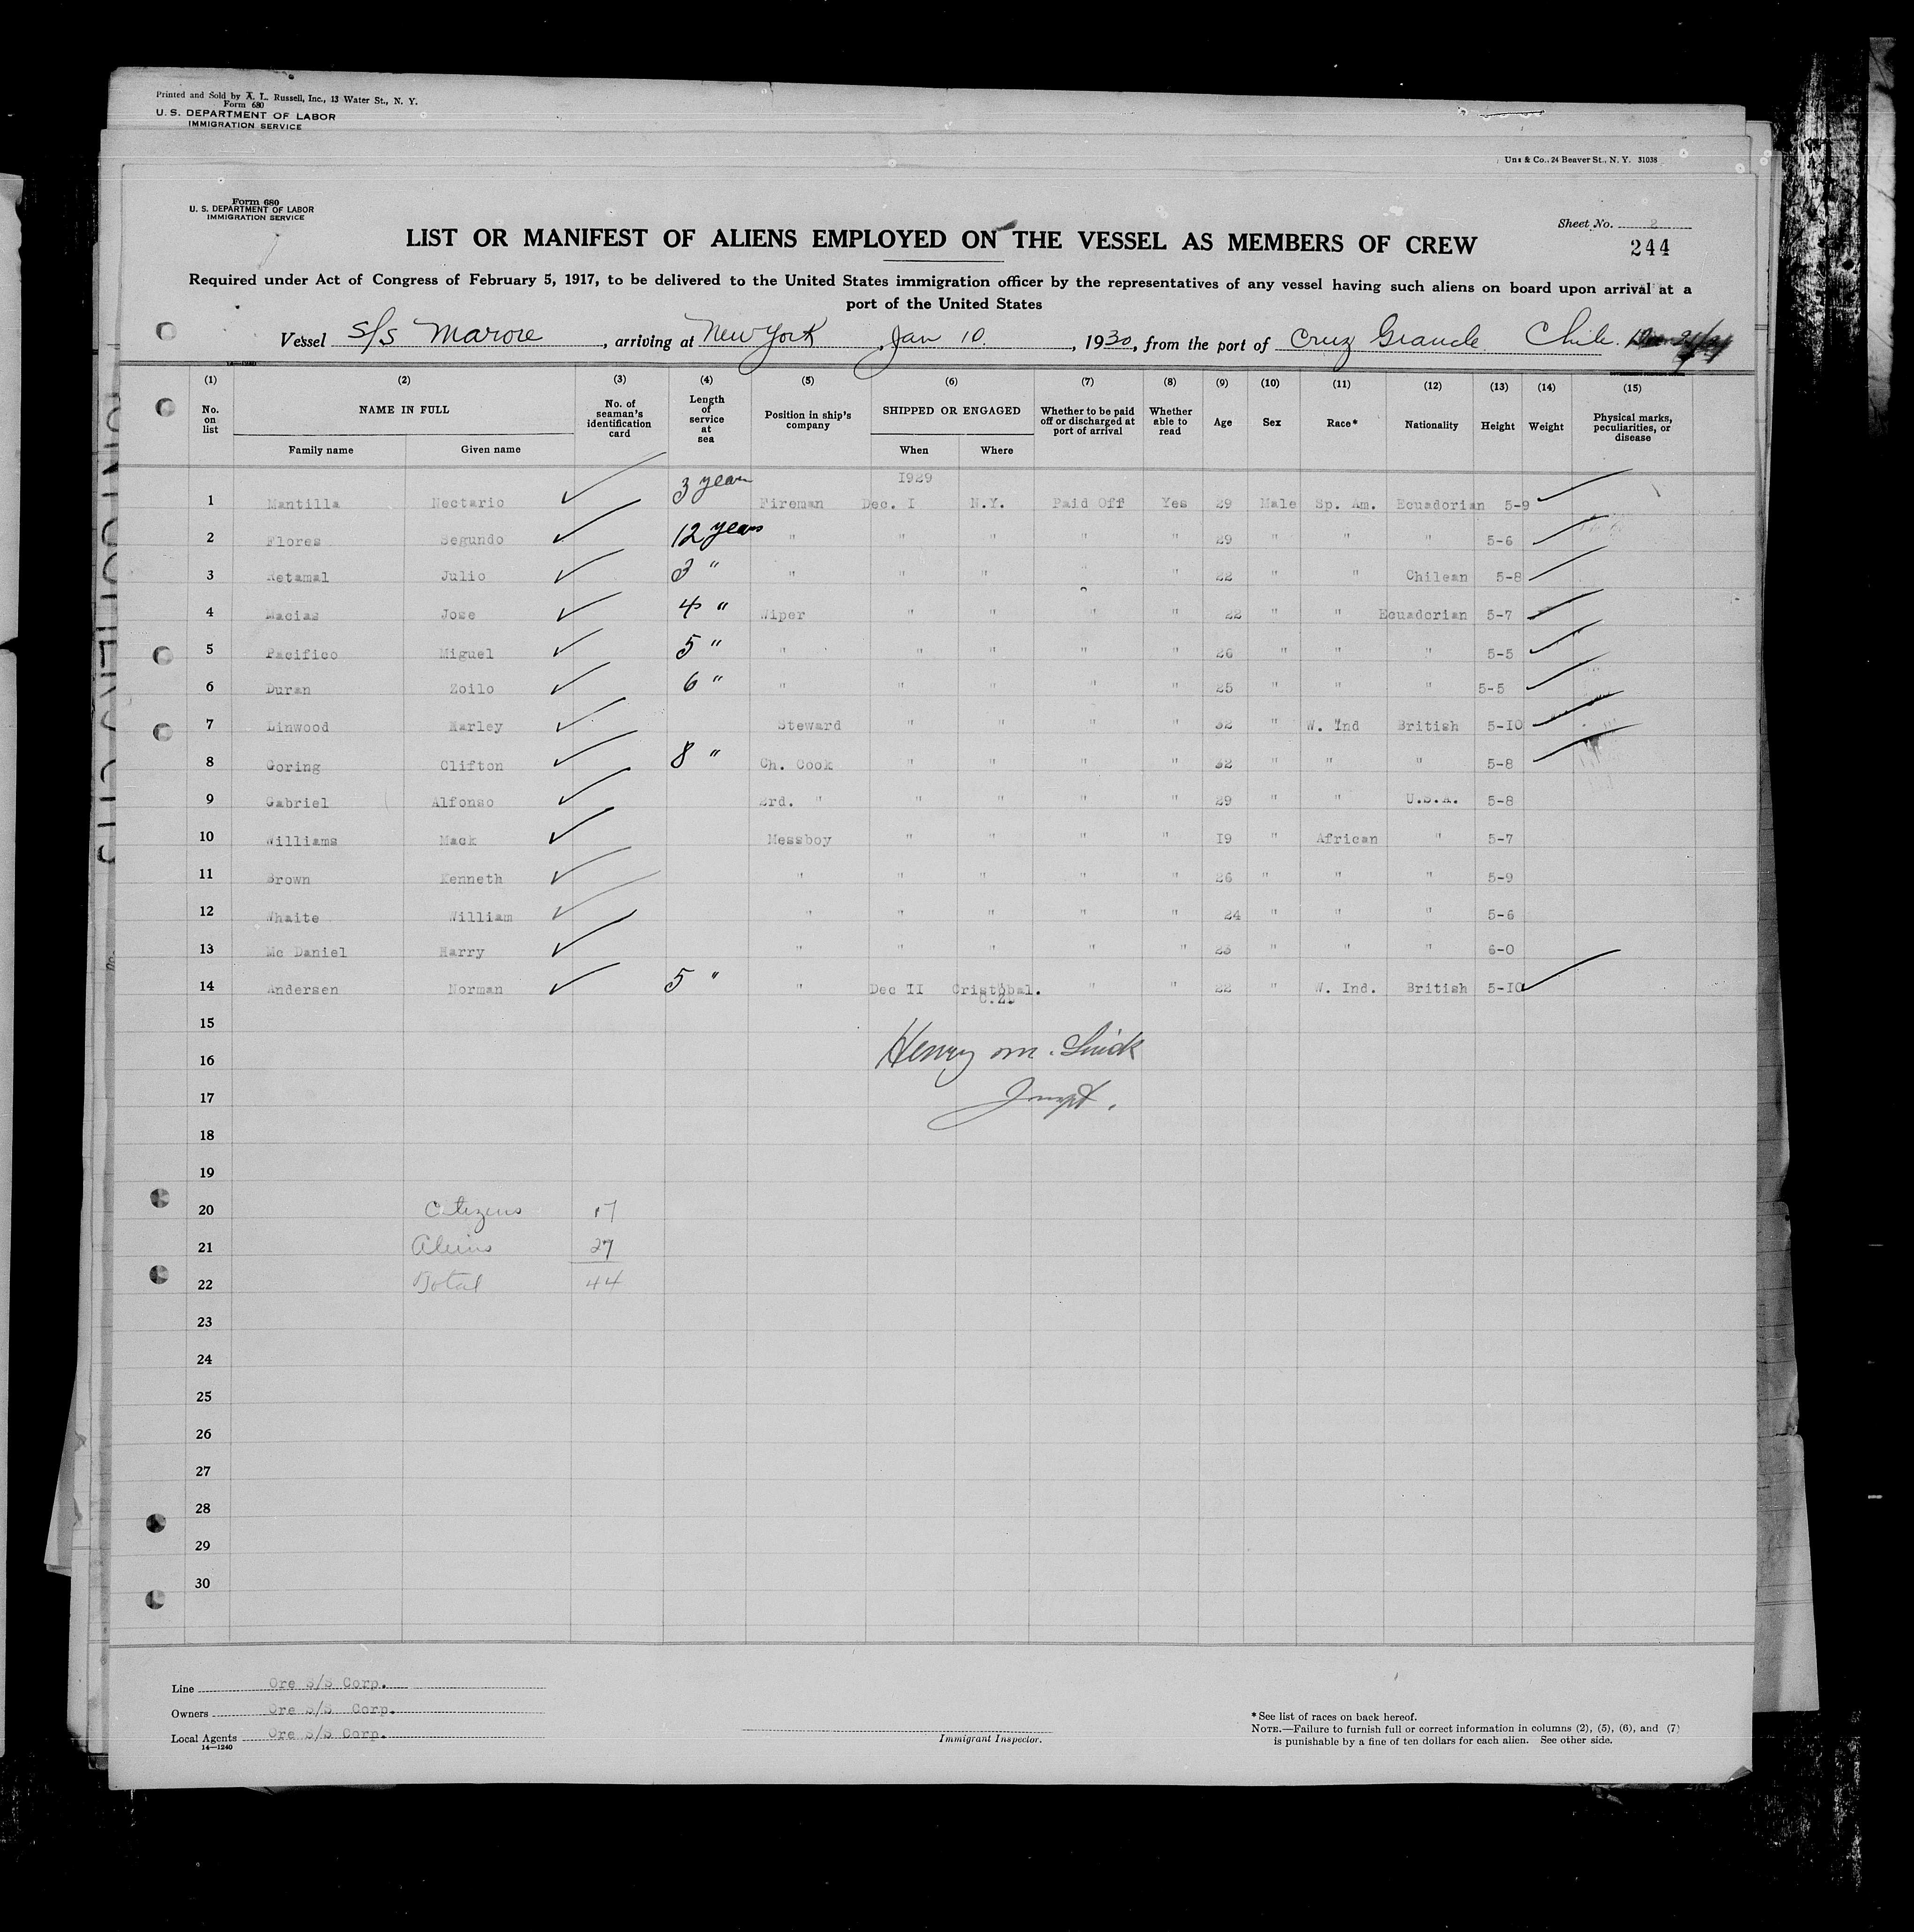 Printed and Sold by A. L. Russell, Inc., 13 Water St., N. Y.
Form 680
U. S. DEPARTMENT OF LABOR
IMMIGRATION SERVICE
& Co., 24 Beaver St., N. Y. 31038
Form 680
U. S. DEPARTMENT OF LABOR
IMMIGRATION SERVICE
Sheet No. 2
244
LIST OR MANIFEST OF ALIENS EMPLOYED ON THE VESSEL AS MEMBERS OF CREW
Required under Act of Congress of February 5, 1917, to be delivered to the United States immigration officer by the representatives of any vessel having such aliens on board upon arrival at a
port of the United States
Vessel S/S Marore, arriving at New York, Jan 10., 1930, from the port of Cruz Grande Chile.
(1) (2) (3) (4) (5) (6) (7) (8) (9) (10) (11) (12) (13) (14) (15)
No. on list NAME IN FULL Family name Given name No. of seaman's identification card Length of service at sea Position in ship's company SHIPPED OR ENGAGED When Where Whether to be paid off or discharged at port of arrival Whether able to read Age Sex Race* Nationality Height Weight Physical marks, peculiarities, or disease
1929
1 Mantilla Nectario 3 years Fireman Dec. I N.Y. Paid Off Yes 29 Male Sp. Am. Ecuadorian 5-9
2 Flores Segundo 12 years " " " " " 29 " " " 5-6
3 Retamal Julio 3 " " " " " " 22 " " Chilean 5-8
4 Macias Jose 4 " Wiper " " " " 22 " " Ecuadorian 5-7
5 Pacifico Miguel 5 " " " " " " 26 " " " 5-5
6 Duran Zoilo 6 " " " " " " 25 " " " 5-5
7 Linwood Harley Steward " " " " 32 " W. Ind British 5-10
8 Goring Clifton 8 " Ch. Cook " " " " 32 " " " 5-8
9 Gabriel Alfonso 2rd. " " " " " 29 " " U.S.A. 5-8
10 Williams Mack Messboy " " " " 19 " African " 5-7
11 Brown Kenneth " " " " " 26 " " " 5-9
12 Whaite William " " " " " 24 " " " 5-6
13 Mc Daniel Harry " " " " " 23 " " " 6-0
14 Andersen Norman 5 " " Dec II Cristobal. " " 22 " W. Ind. British 5-10
C.Z.
15
16 Henry M.
17
18
19
20 Citizens 17
21 Aliens 27
22 Total 44
23
24
25
26
27
28
29
30
Line Ore S/S Corp.
Owners Ore S/S Corp.
Local Agents Ore S/S Corp.
14—1240
Immigrant Inspector.
* See list of races on back hereof.
NOTE.—Failure to furnish full or correct information in columns (2), (5), (6), and (7)
is punishable by a fine of ten dollars for each alien. See other side.